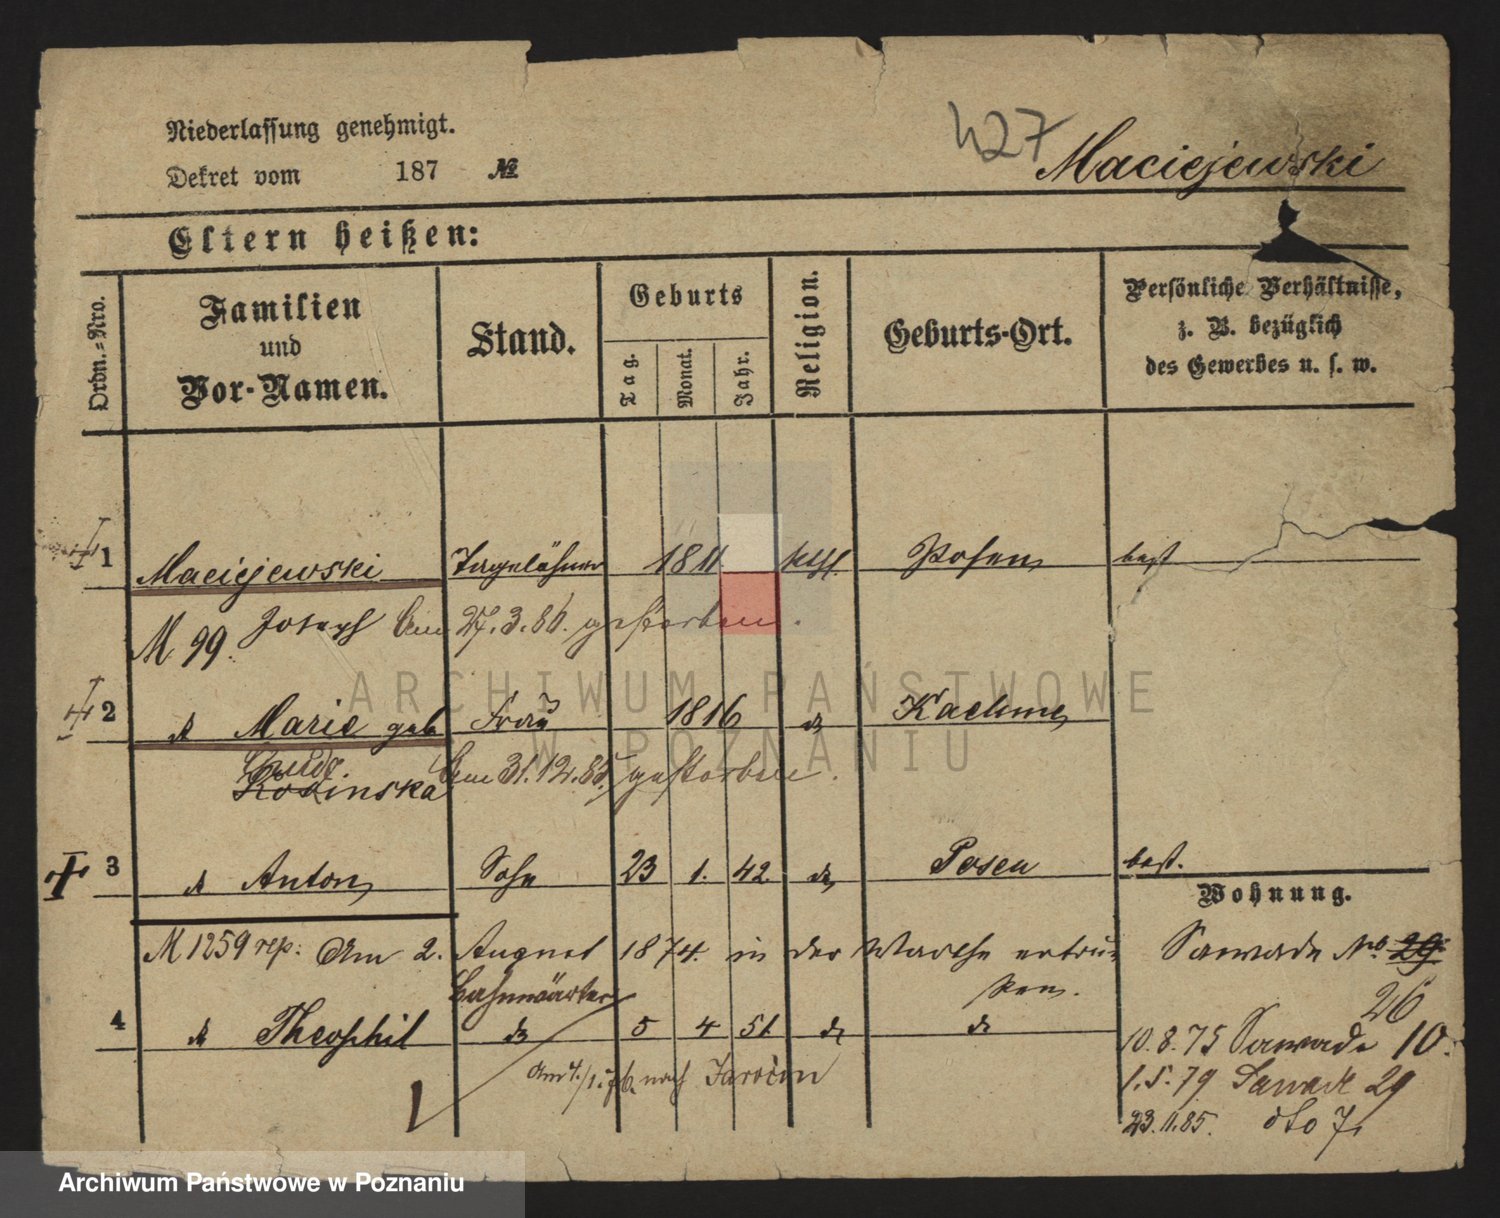 Niederlassung genehmigt.
Dekret vom 187 №
427 Maciejewski
Eltern heißen:
Ordn.-Nro.
Familien
und
Vor-Namen.
Stand.
Geburts
Tag.
Monat.
Jahr.
Religion.
Geburts-Ort.
Persönliche Verhältnisse,
z. B. bezüglich
des Gewerbes u. s. w.
1 Maciejewski Tagelöhner 1811 kth. Posen best
M 99. Joseph Am 27.3.86. gestorben.
2 Marie geb. Frau 1816 Kaehme
Am 31.12.85 gestorben.
Rosinska
3 Anton Sohn 23 1. 42 Posen best.
Wohnung.
M 1259 rep: Am 2. August 1874. in der Warthe ertrun-
ken.
Sawade No. 29
26
Bahnwärter
4 Theophil 5 4 51
10.8.75 Sawade 10.
Am 4./1.76. nach Jarocin
1.5.79 Sawade 29
23.11.85. dto 7.
ARCHIWUM PAŃSTWOWE
W POZNANIU
Archiwum Państwowe w Poznaniu